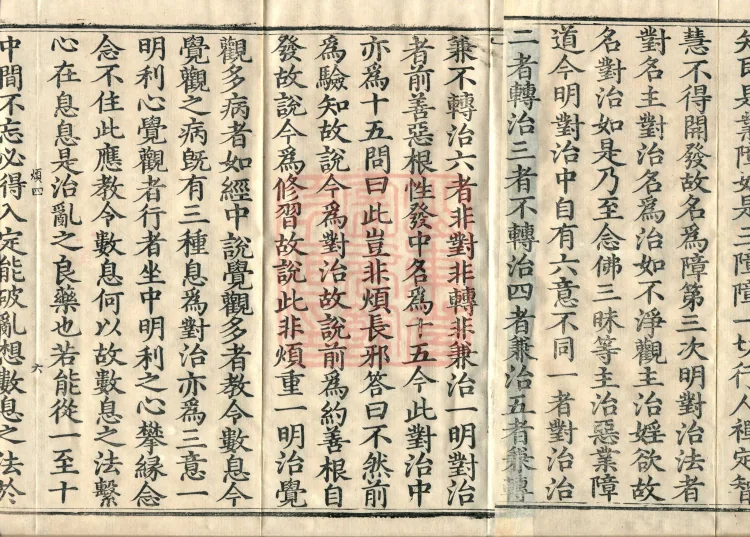 知百是業障如是三障障一切行人禪定智
慧不得開發故名為障第三次明對治法者
對名主對治名為治如不淨觀主治婬欲故
名對治如是乃至念佛三昧等主治惡業障
道今明對治中自有六意不同一者對治治
二者轉治三者不轉治四者兼治五者兼轉
兼不轉治六者非對非轉非兼治一明對治
者前善惡根性發中名為十五今此對治中
亦為十五問曰此豈非煩長邪答曰不然前
為驗知故說今為對治故說前為約善根自
發故說今為修習故說此非煩重一明治覺
觀多病者如經中說覺觀多者教令數息今
覺觀之病既有三種息為對治亦為三意一
明利心覺觀者行者坐中明利之心攀緣念
念不住此應教令數息何以故數息之法繫
心在息息是治亂之良藥也若能從一至十
煩四
六
中間不忘必得入定能破亂想數息之法於